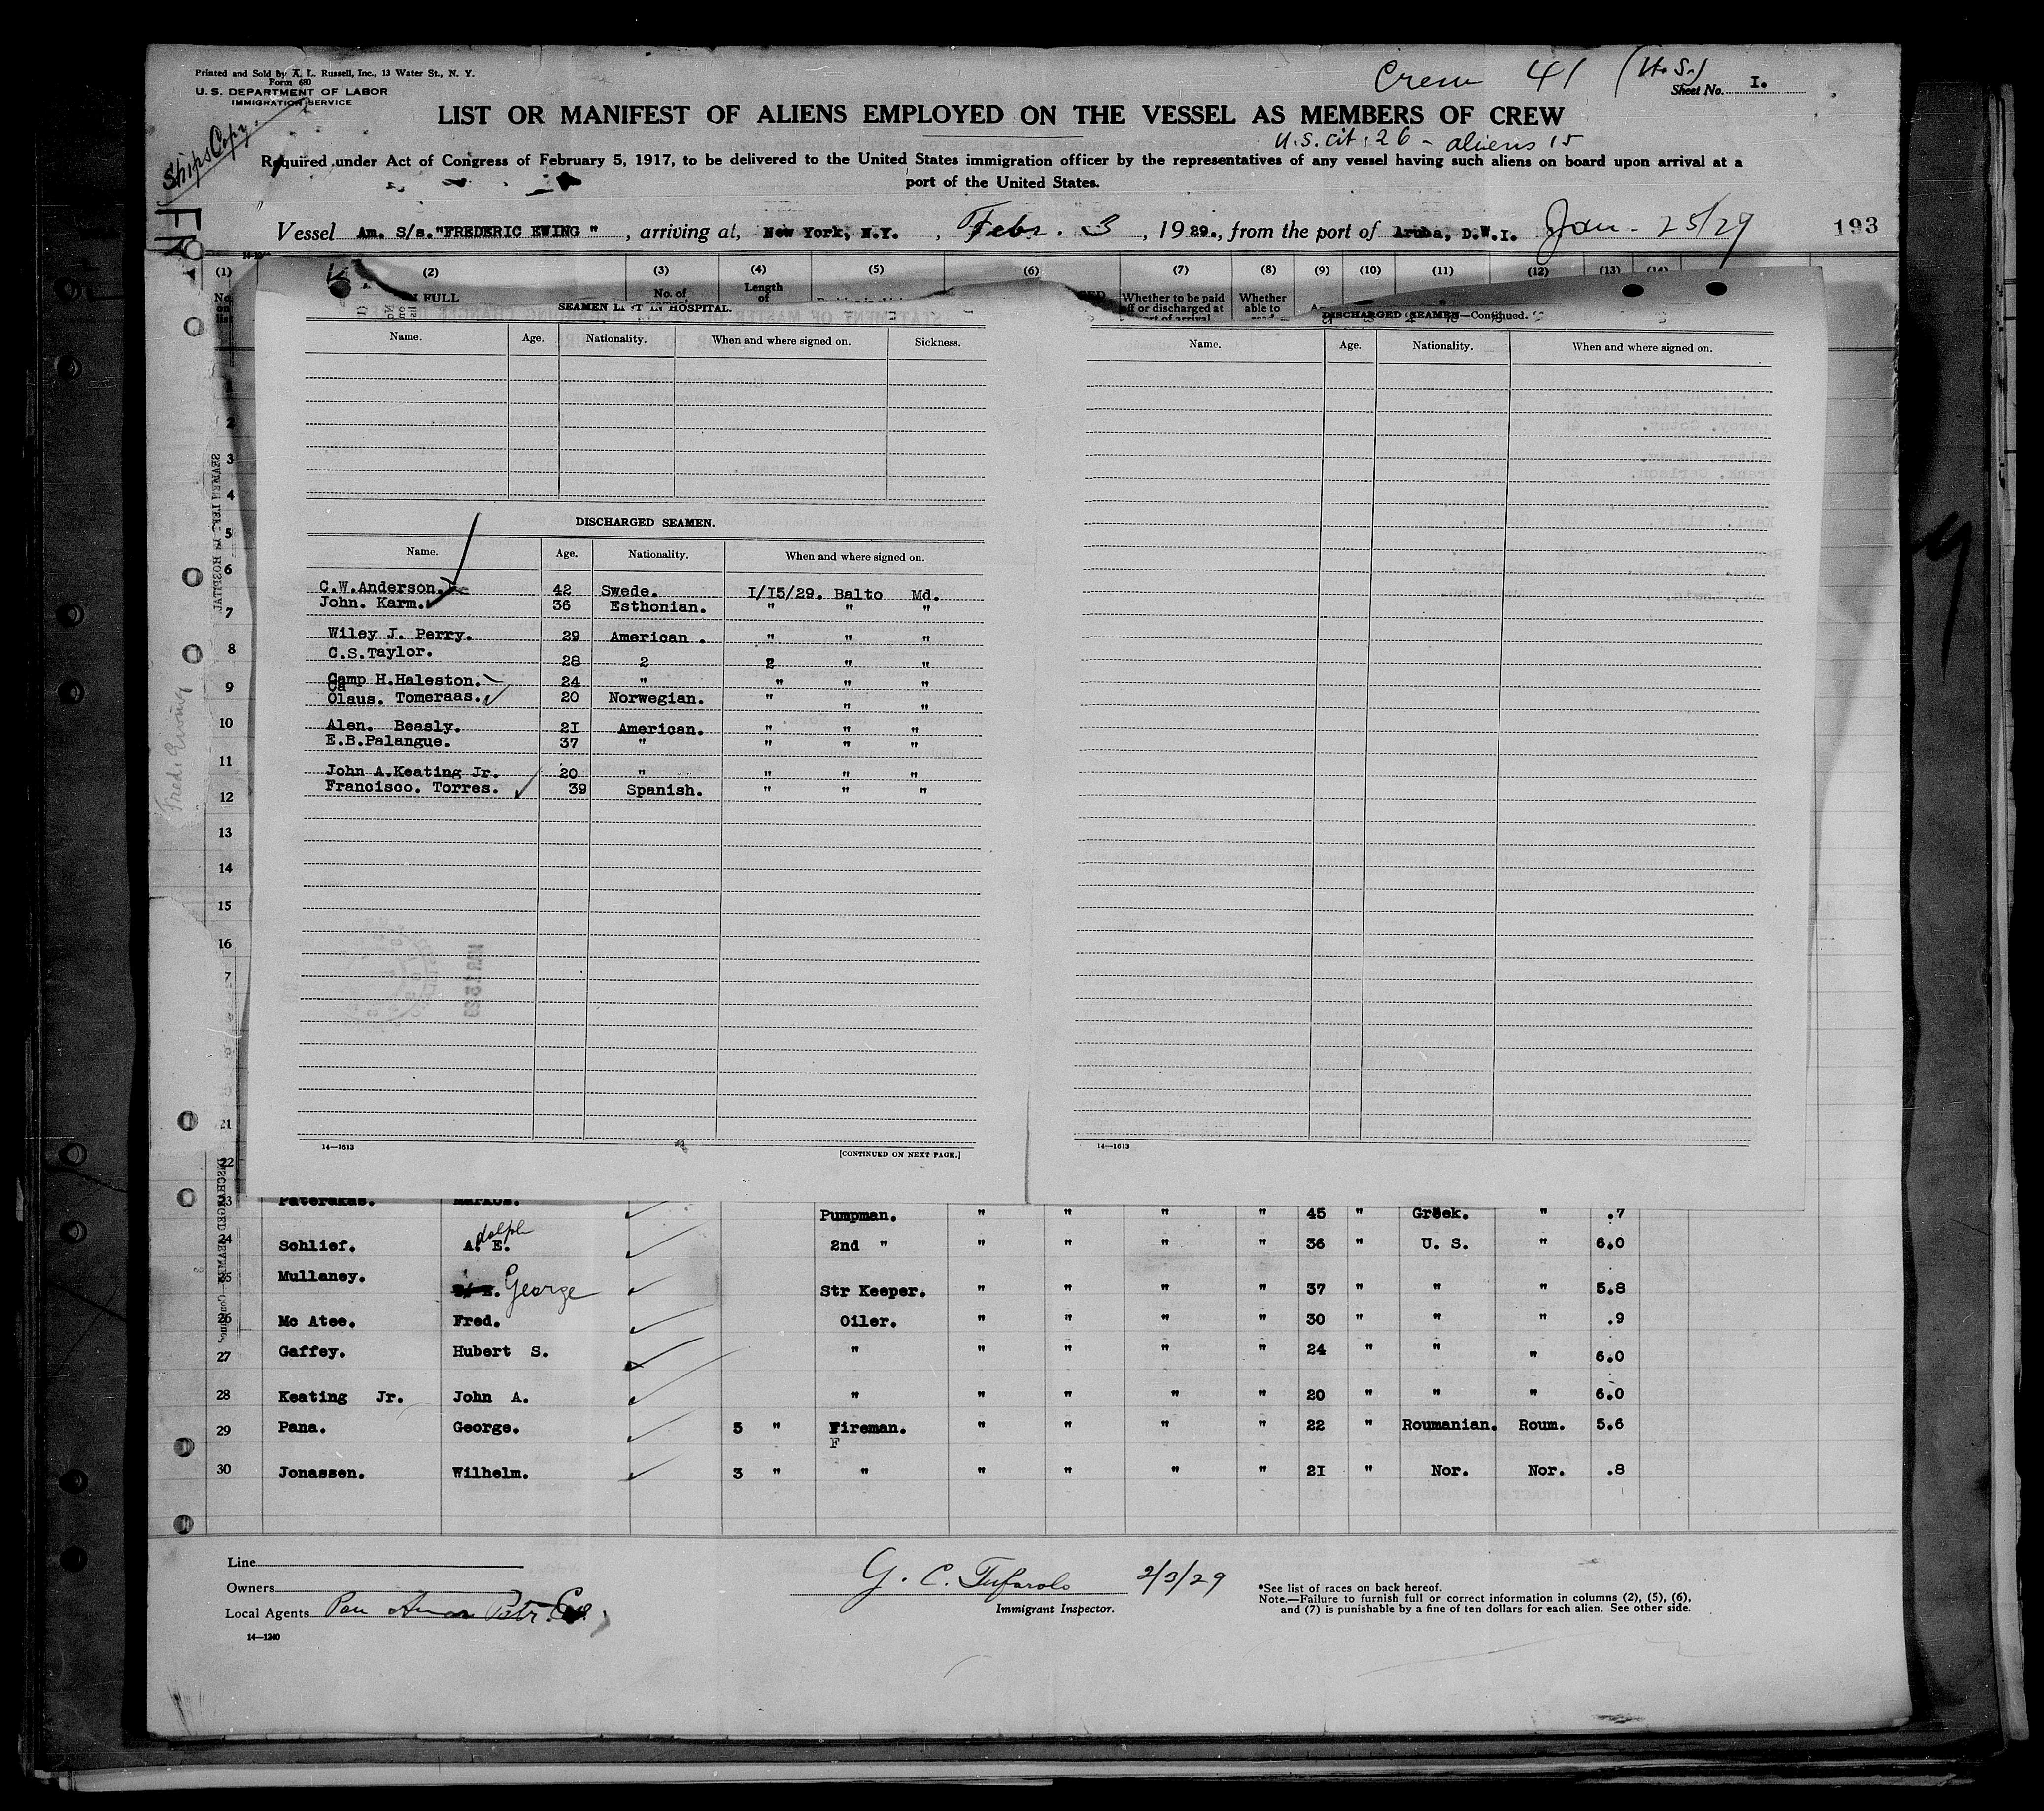 Printed and Sold by A. L. Russell, Inc., 13 Water St., N. Y.
Form 680
U. S. DEPARTMENT OF LABOR
IMMIGRATION SERVICE
Ships Copy.
Crew 41 (U.S.)
Sheet No. I.
LIST OR MANIFEST OF ALIENS EMPLOYED ON THE VESSEL AS MEMBERS OF CREW
U.S. cit. 26 - aliens 15
Required under Act of Congress of February 5, 1917, to be delivered to the United States immigration officer by the representatives of any vessel having such aliens on board upon arrival at a
port of the United States.
Vessel Am. S/s. "FREDERIC EWING ", arriving at, New York, N.Y., Febr. 3, 1929., from the port of Aruba, D.W.I. Jan - 25/29 193
(1) (2) (3) (4) (5) (6) (7) (8) (9) (10) (11) (12) (13) (14)
No. on list FULL No. of Length of Whether to be paid off or discharged at port of arrival Whether able to
SEAMEN LEFT IN HOSPITAL.
Name. Age. Nationality. When and where signed on. Sickness.
DISCHARGED SEAMEN—Continued.
Name. Age. Nationality. When and where signed on.
DISCHARGED SEAMEN.
Name. Age. Nationality. When and where signed on.
C.W.Anderson. 42 Swede. I/I5/29. Balto Md.
John. Karm. 36 Esthonian. " " "
Wiley J. Perry. 29 American . " " "
C.S.Taylor. 28 2 2 " "
Camp H.Haleston. 24 " " " "
Ca
Olaus. Tomeraas. 20 Norwegian. " " "
Alen. Beasly. 2I American. " " "
E.B.Palangue. 37 " " " "
John A.Keating Jr. 20 " " " "
Francisco. Torres. 39 Spanish. " " "
14—1613
[CONTINUED ON NEXT PAGE.]
14—1613
3
4
5
6
7
8
9
10
11
12
13
14
15
16
21
22
SEAMEN LEFT IN HOSPITAL
23 Paterakas. Markos. Pumpman. " " " " 45 " Greek. " .7
24 Schlief. A. E. adolph 2nd " " " " " 36 " U. S. " 6.0
25 Mullaney. George Str Keeper. " " " " 37 " " " 5.8
26 Mc Atee. Fred. Oiler. " " " " 30 " " " .9
27 Gaffey. Hubert S. " " " " " 24 " " " 6.0
28 Keating Jr. John A. " " " " " 20 " " " 6.0
29 Pana. George. 5 " Fireman. " " " " 22 " Roumanian. Roum. 5.6
F
30 Jonassen. Wilhelm. 3 " " " " " " 2I " Nor. Nor. .8
Line
Owners
Local Agents Pan Amer Petr. Co.
14—1240
G. C. Tufarolo 2/3/29
Immigrant Inspector.
*See list of races on back hereof.
Note.—Failure to furnish full or correct information in columns (2), (5), (6),
and (7) is punishable by a fine of ten dollars for each alien. See other side.